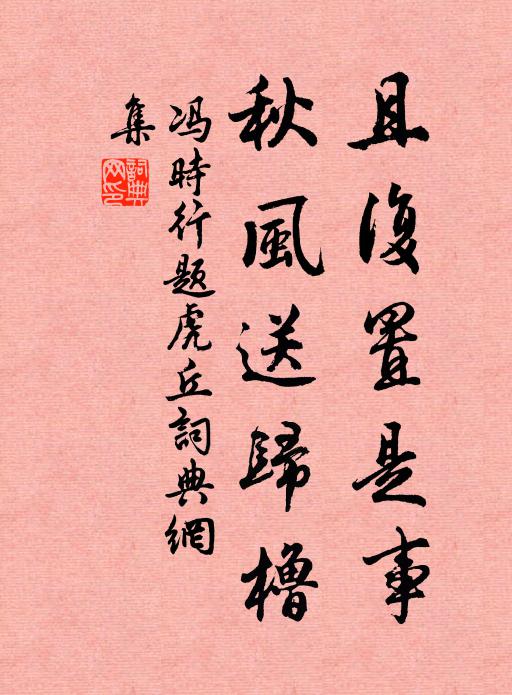 且復置是事
秋風送歸櫓
冯時行題虎丘詞典網
集
詞典網印